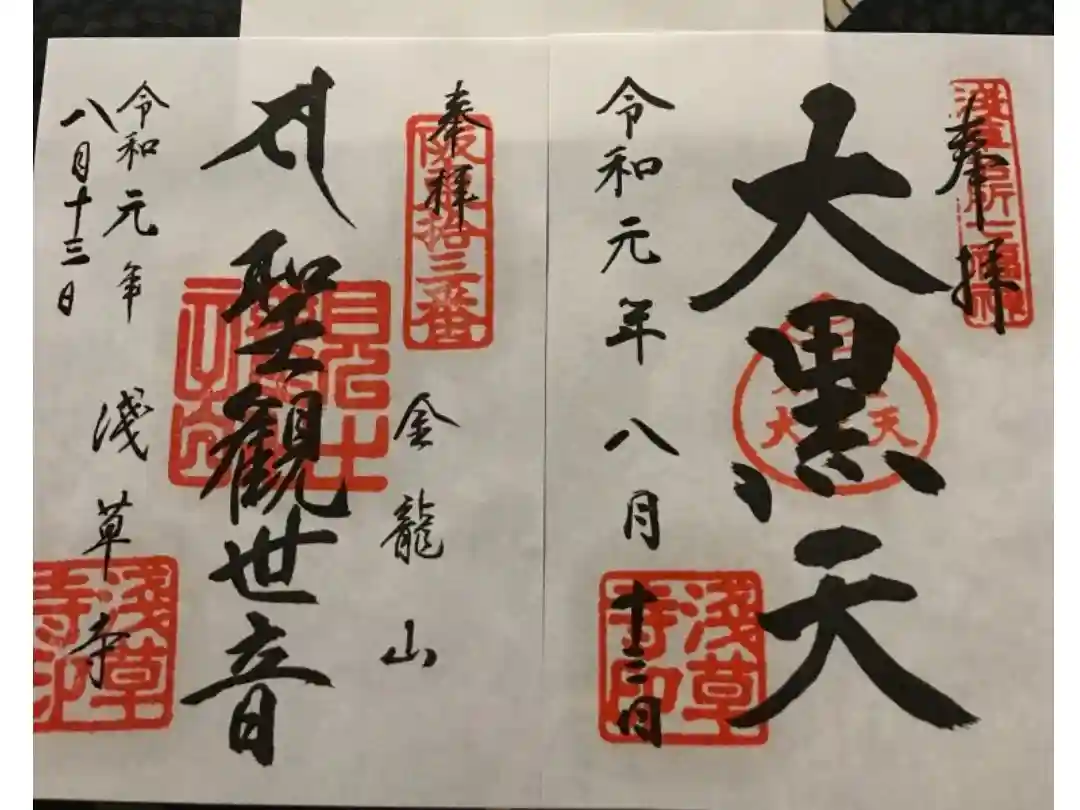 奉拝
浅草名所七福神
大黒天
大 天
令和元年八月十三日
淺草
寺印
奉拝
阪東拾三番
金龍山
聖観世音
令和元年
八月十三日
淺草寺
淺草
寺印